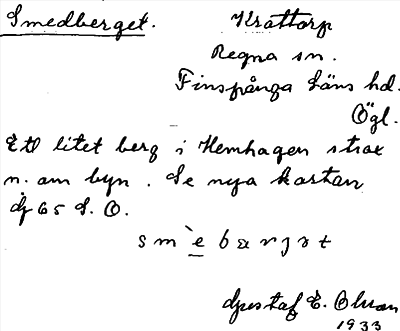 Smedberget. Krattorp
Regna sn.
Finspånga läns hd.
Ögl.
Ett litet berg i Hemhagen strax
n. om byn. Se nya kartan
dj 65 S. O.
sm`e bærjət
Gustaf E. Olsson
1933